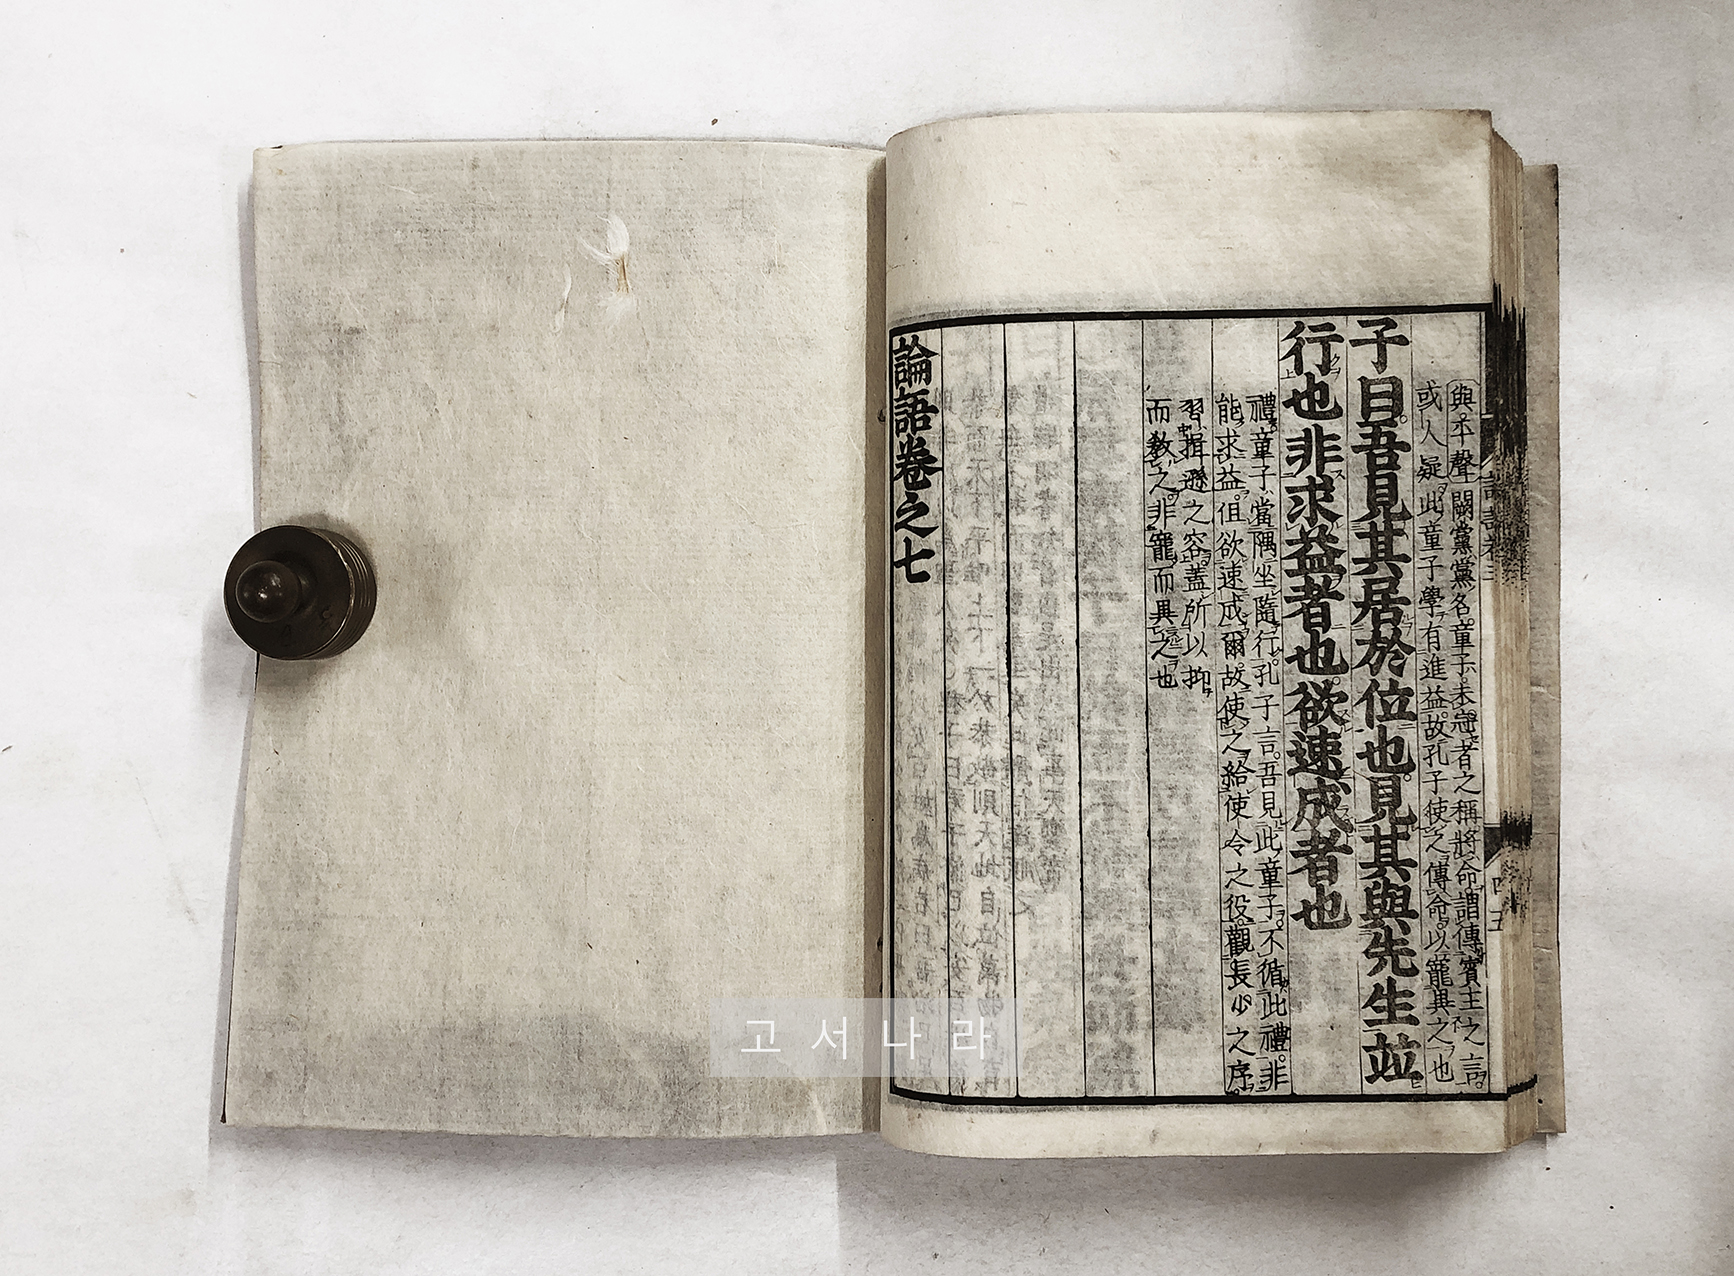 與平聲闕黨黨名童子未冠者之稱將命謂傳賓主之言
或人疑此童子學有進益故孔子使之傳命以寵異之也
子曰吾見其居於位也見其與先生並
行也非求益者也欲速成者也
禮童子當隅坐隨行孔子言吾見此童子不循此禮非
能求益但欲速成爾故使之給使令之役觀長少之序
習揖遜之容蓋所以抑
而敎之非寵而異之也
論語卷之七
고서나라